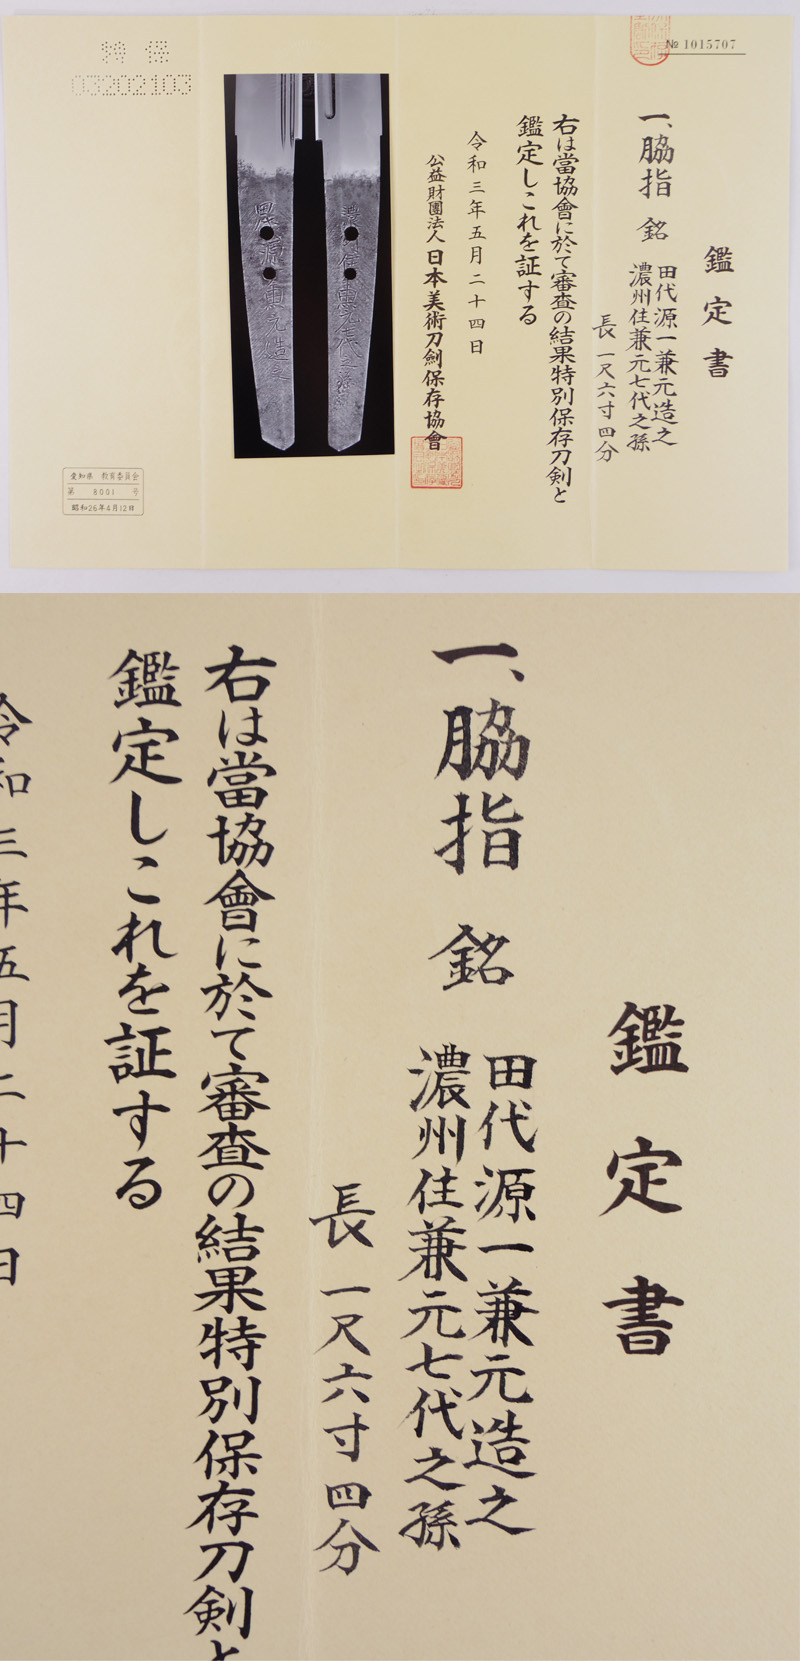 № 1015707
鑑定書
一、脇指 銘 田代源一兼元造之
濃州住兼元七代之孫
長 一尺六寸四分
右は當協會に於て審査の結果特別保存刀剣と
鑑定しこれを証する
令和三年五月二十四日
公益財團法人 日本美術刀劍保存協會
特保
03202103
愛知県 教育委員会
第 8001 号
昭和26年4月12日
鑑定書
一、脇指 銘 田代源一兼元造之
濃州住兼元七代之孫
長 一尺六寸四分
右は當協會に於て審査の結果特別保存刀剣と
鑑定しこれを証する
令和三年五月二十四日